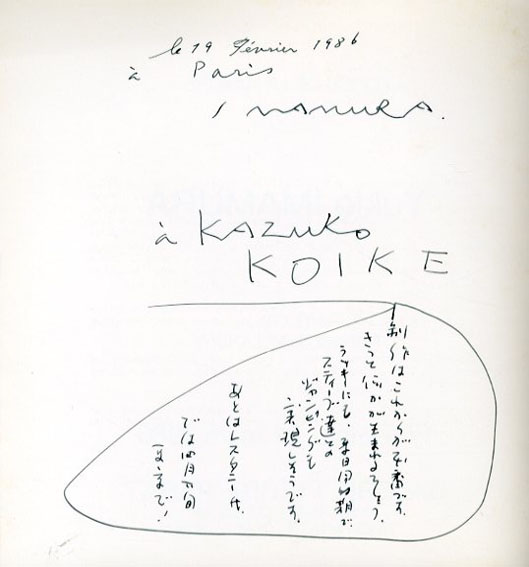 le 19 Février 1986
à Paris
IMAMURA.
à KAZUKO
KOIKE
制作はこれからが本番です。
きっと何かが生まれるでしょう。
スティーブ達との
ジャンピングも
実現しそうです。
あとはレスタニー代
では 月 旬
まで!